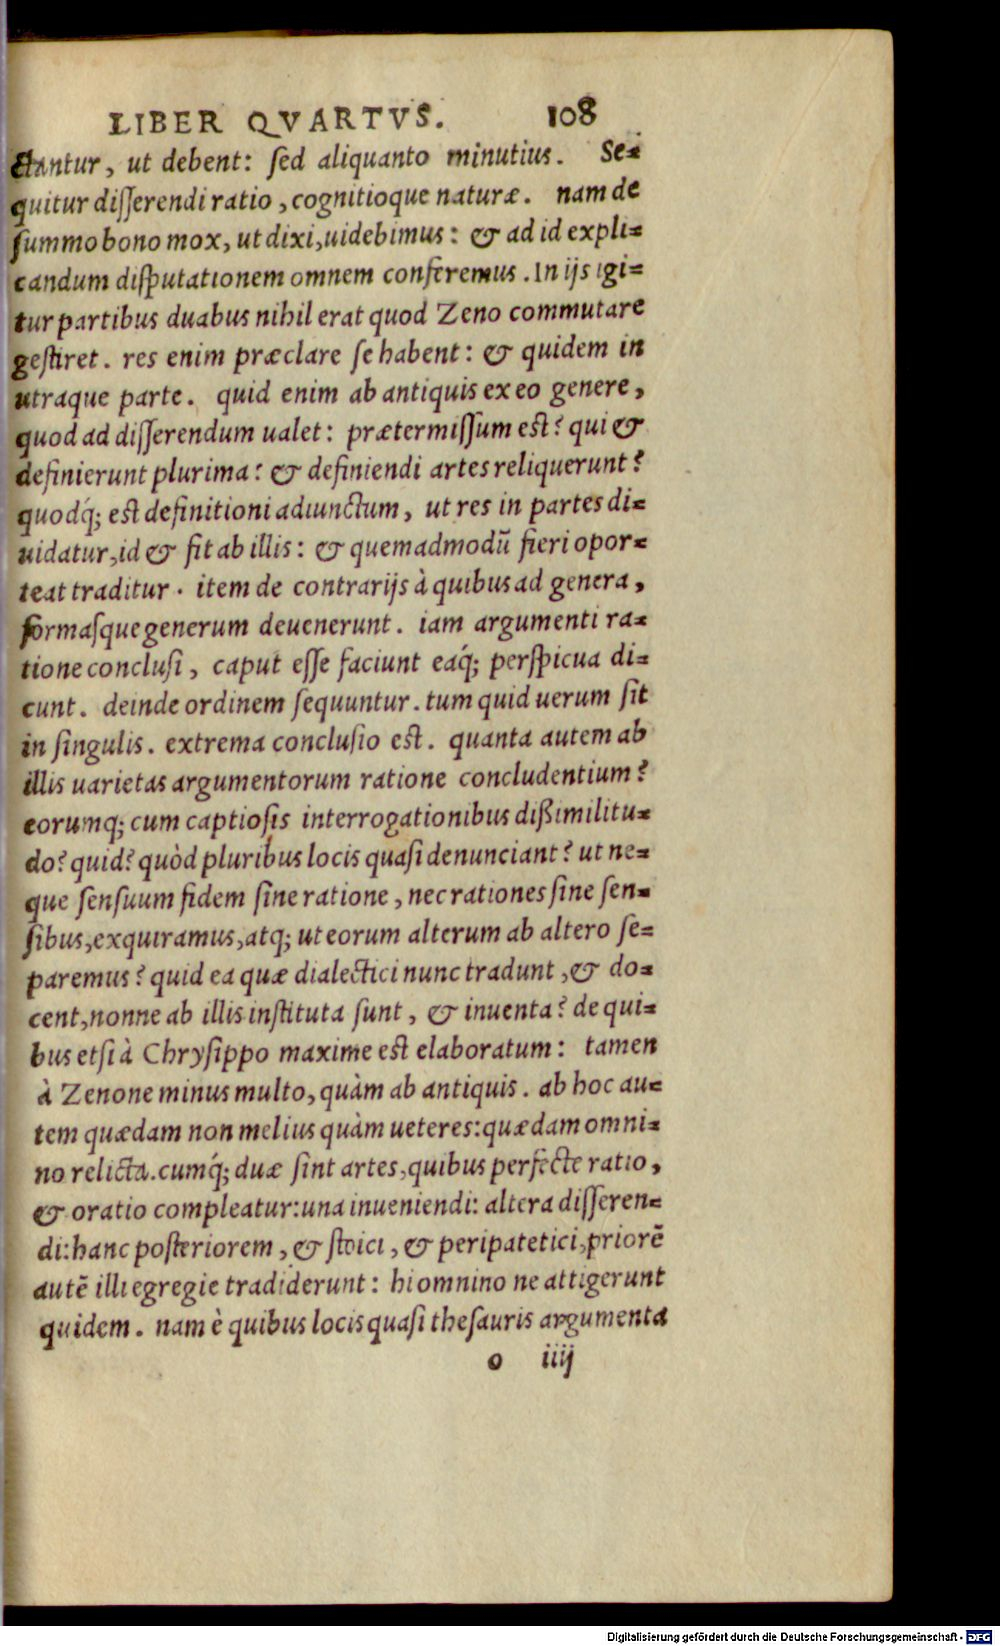 LIBER QVARTVS. 108
ctantur, ut debent: ſed aliquanto minutius. Se=
quitur diſſerendi ratio, cognitioque naturæ. nam de
ſummo bono mox, ut dixi, uidebimus: & ad id expli=
candum diſputationem omnem conferemus. In ijs igi=
tur partibus duabus nihil erat quod Zeno commutare
geſtiret. res enim præclare ſe habent: & quidem in
utraque parte. quid enim ab antiquis ex eo genere,
quod ad diſſerendum ualet: prætermiſſum eſt? qui &
definierunt plurima? & definiendi artes reliquerunt?
quodq́; eſt definitioni adiunctum, ut res in partes di=
uidatur, id & fit ab illis: & quemadmodū fieri opor=
teat traditur. item de contrarijs à quibus ad genera,
formaſque generum deuenerunt. iam argumenti ra=
tione concluſi, caput eſſe faciunt eaq́; perſpicua di=
cunt. deinde ordinem ſequuntur. tum quid uerum ſit
in ſingulis. extrema concluſio eſt. quanta autem ab
illis uarietas argumentorum ratione concludentium?
eorumq; cum captioſis interrogationibus dißimilitu=
do? quid? quòd pluribus locis quaſi denunciant? ut ne=
que ſenſuum fidem ſine ratione, nec rationes ſine ſen=
ſibus, exquiramus, atq; ut eorum alterum ab altero ſe=
paremus? quid ea quæ dialectici nunc tradunt, & do=
cent, nonne ab illis inſtituta ſunt, & inuenta? de qui=
bus etſi à Chryſippo maxime eſt elaboratum: tamen
à Zenone minus multo, quàm ab antiquis. ab hoc au=
tem quædam non melius quàm ueteres: quædam omni=
no relicta. cumq́; duæ ſint artes, quibus perfecte ratio,
& oratio compleatur: una inueniendi: altera diſſeren=
di: hanc poſteriorem, & ſtoici, & peripatetici, priorē
autē illi egregie tradiderunt: hi omnino ne attigerunt
quidem. nam è quibus locis quaſi theſauris argumenta
o iiij
Digitalisierung gefördert durch die Deutsche Forschungsgemeinschaft - DFG